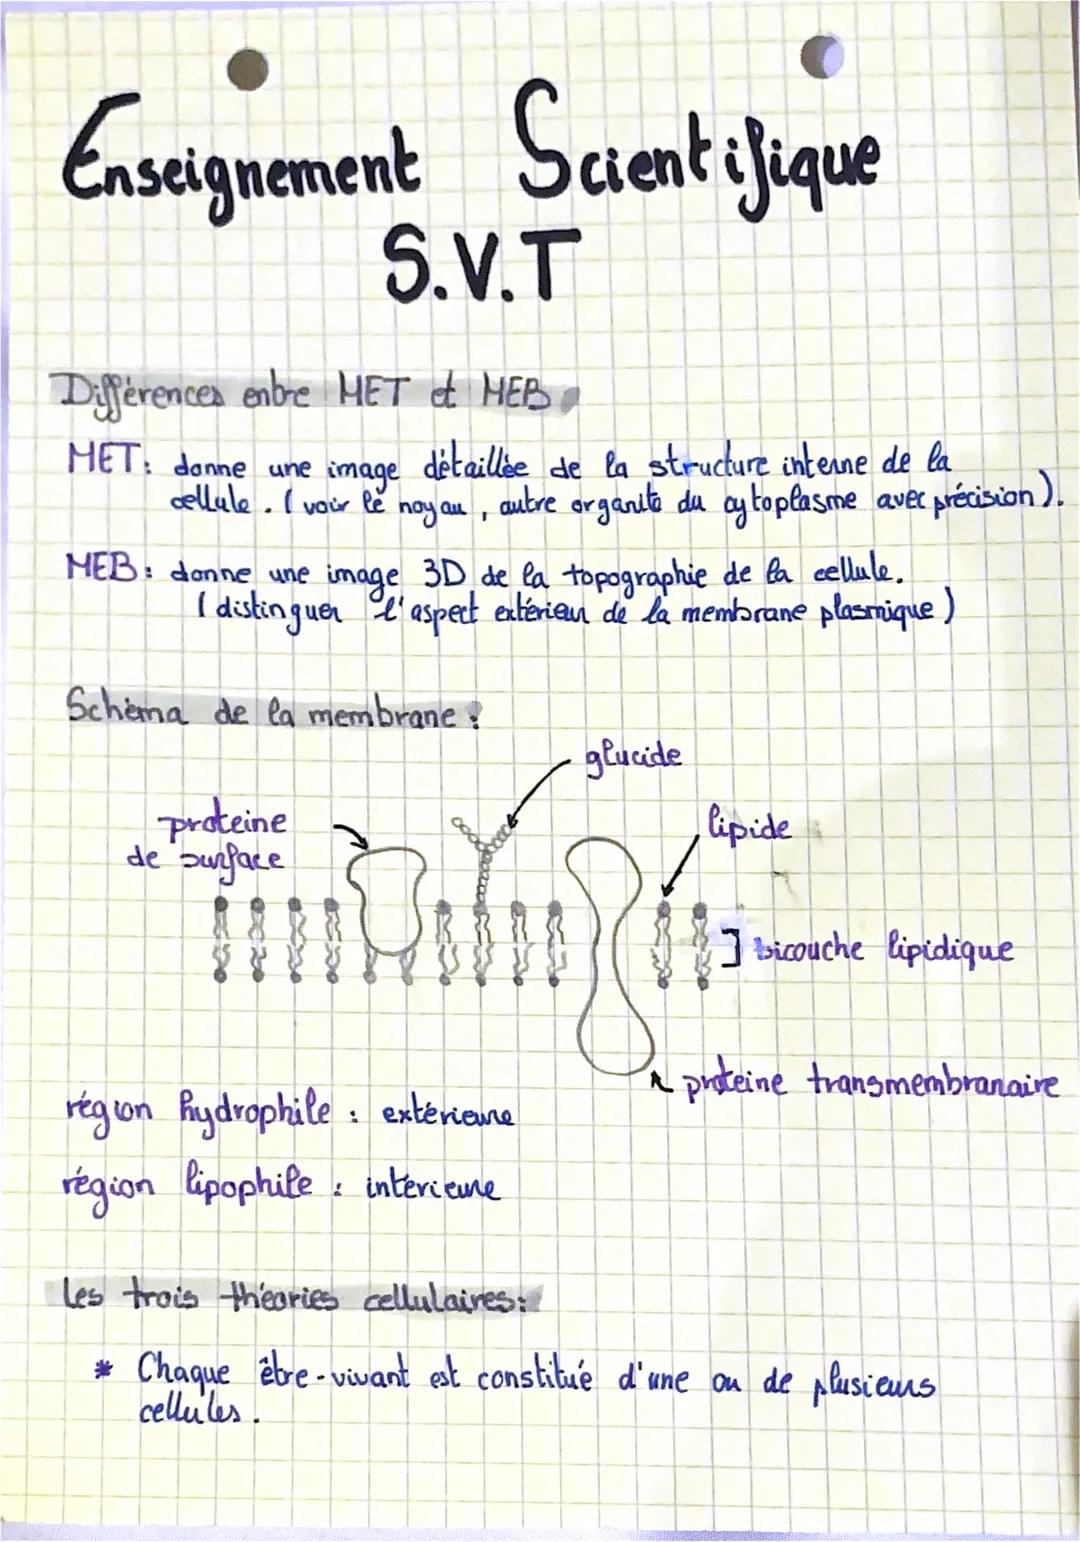 Enseignement Scientifique
S.V.T
Différences entre MET et MEB
MET: donne une image détaillée de la structure interne de la
cellule. (voir le noyau, autre organite du cytoplasme avec précision).
MEB: donne une image 3D de la topographie de la cellule.
(distinguer l'aspect extérieur de la membrane plasmique)
Schéma de la membrane:
glucide
proteine
de surface
lipide
bicouche lipidique
proteine transmembranaire
région hydrophile : extérieure
région lipophile : intérieure
Les trois théories cellulaires:
* Chaque être-vivant est constitué d'une ou de plusieurs
cellules.